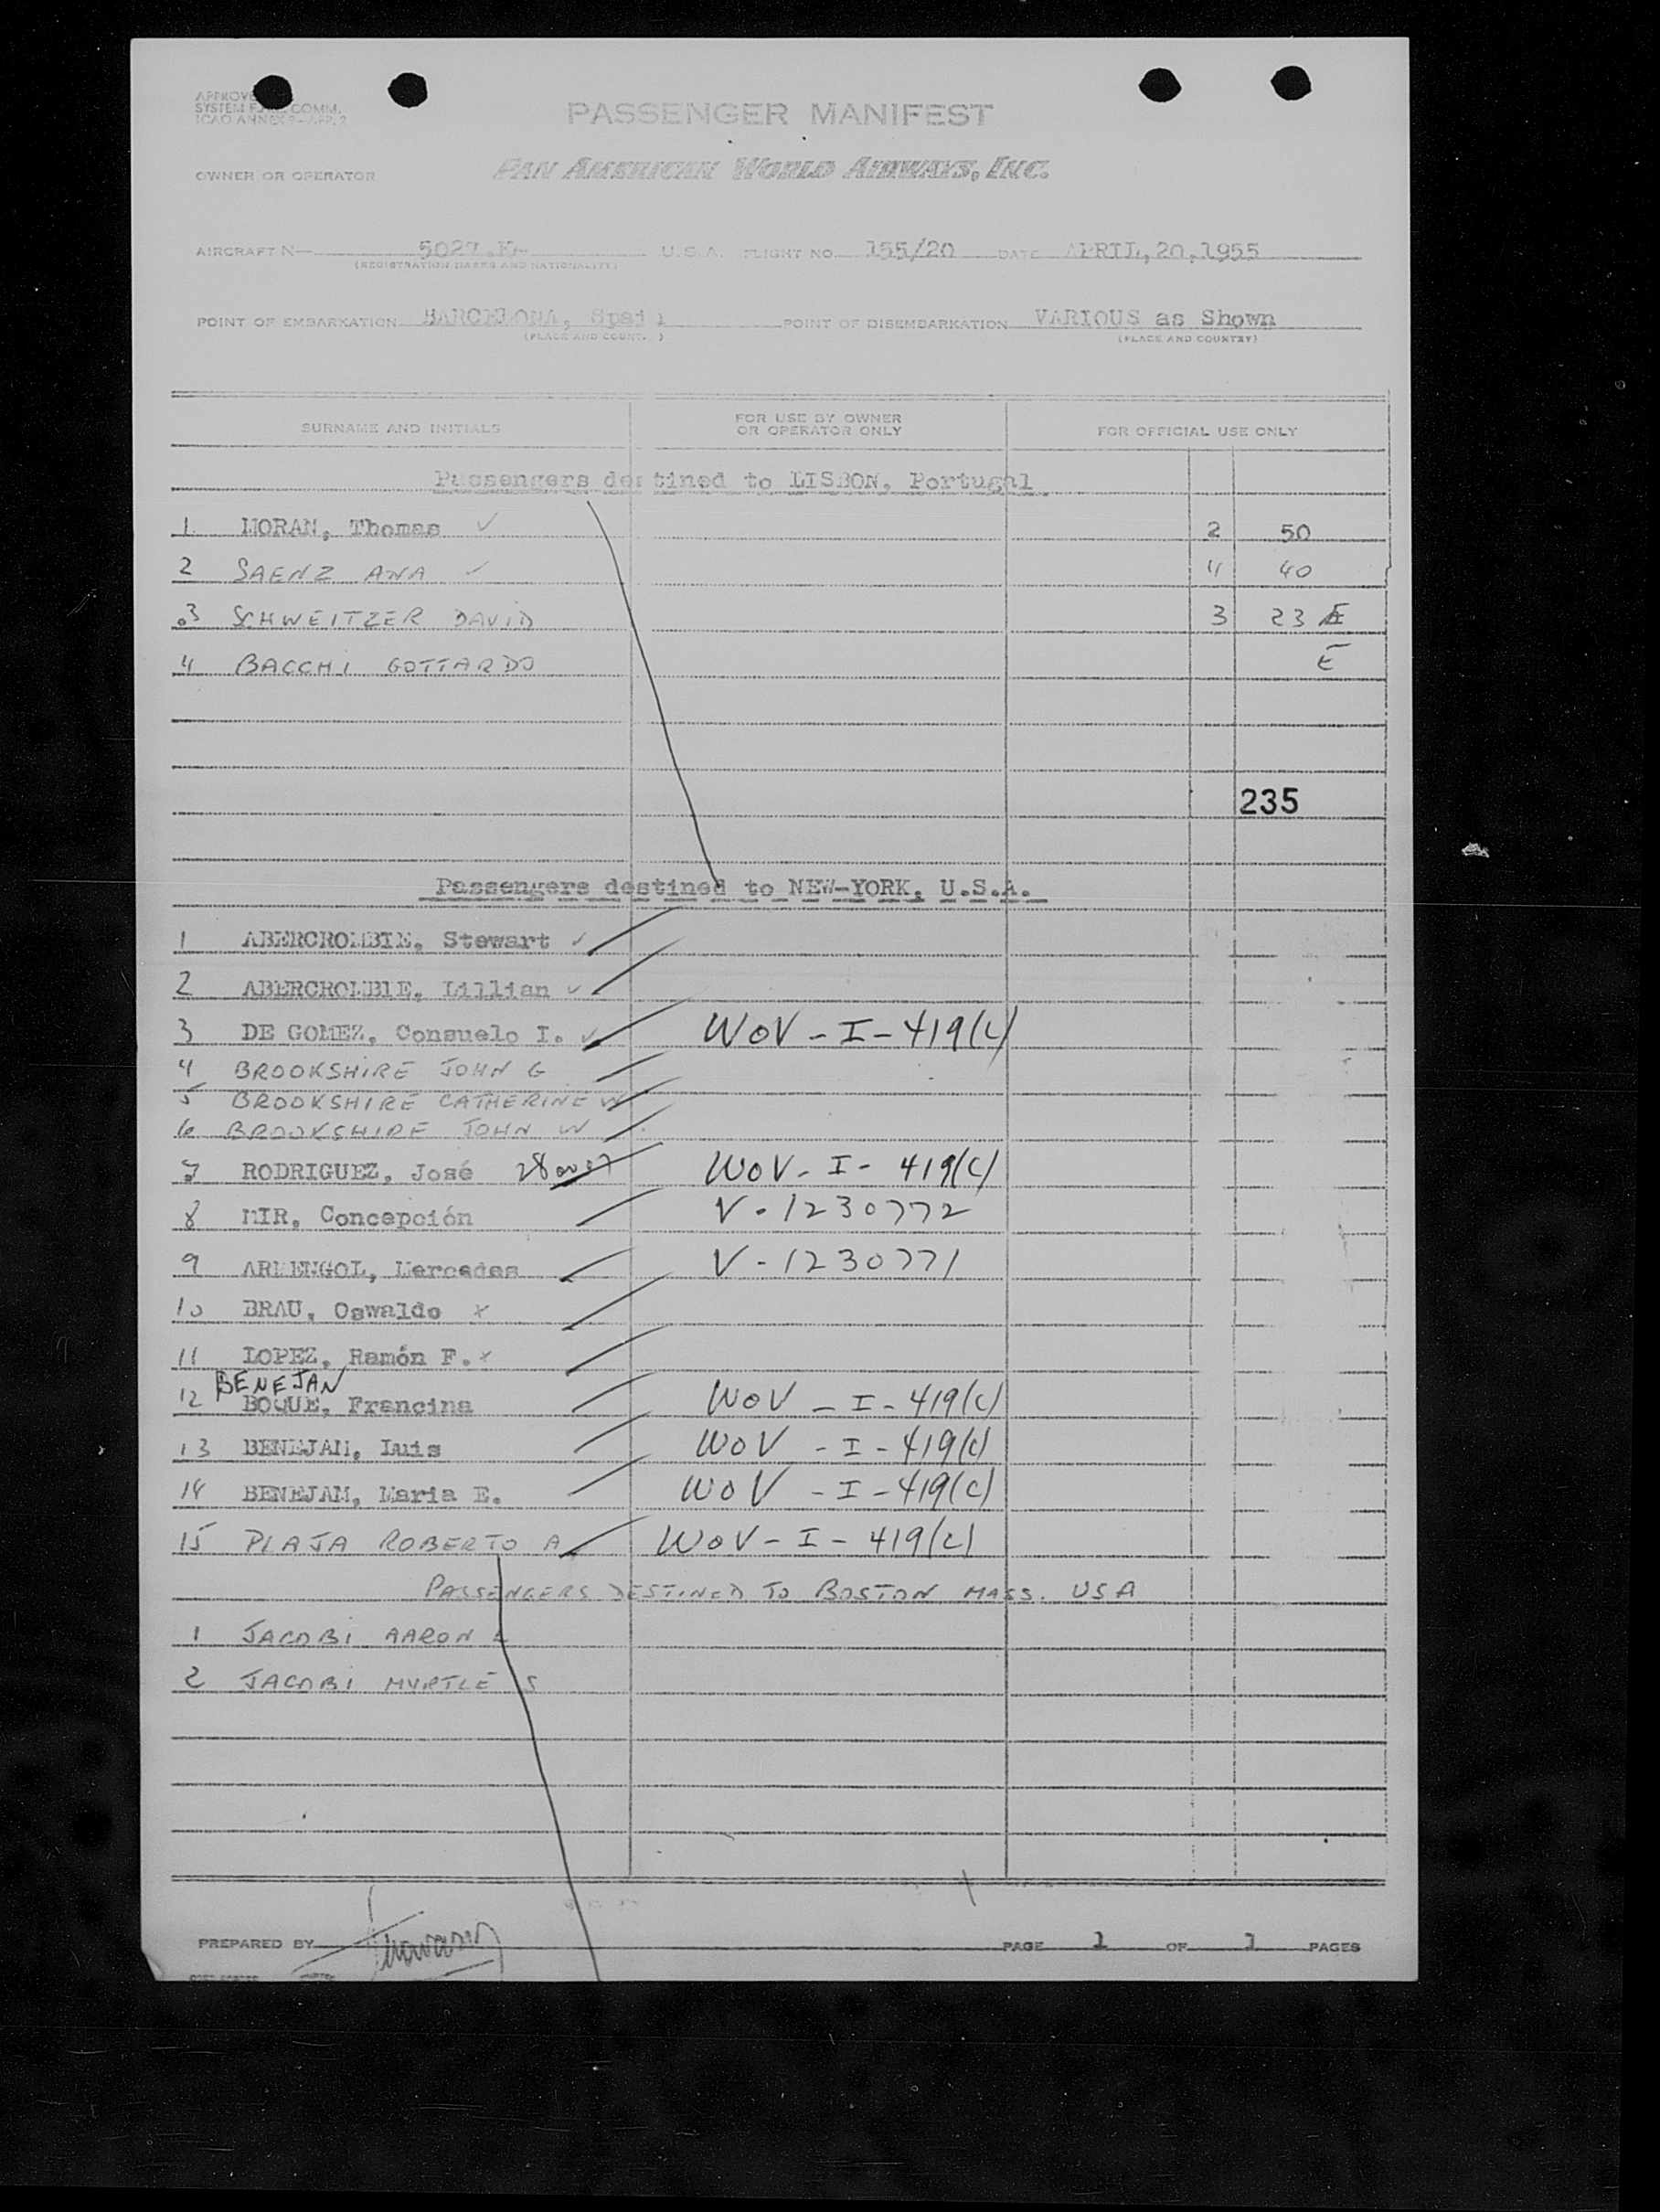 PASSENGER MANIFEST
OWNER OR OPERATOR PAN AMERICAN WORLD AIRWAYS, INC.
AIRCRAFT N— U.S.A. FLIGHT NO. 155/20 DATE APRIL,20,1955
(REGISTRATION MARKS AND NATIONALITY)
POINT OF EMBARKATION BARCELONA, Spain POINT OF DISEMBARKATION VARIOUS as Shown
(PLACE AND COUNTRY) (PLACE AND COUNTRY)
SURNAME AND INITIALS FOR USE BY OWNER OR OPERATOR ONLY FOR OFFICIAL USE ONLY
Passengers destined to LISBON, Portugal
1 MORAN, Thomas ✓ 2 50
2 SAENZ ANA ✓ 4 40
3 SCHWEITZER DAVID 3 23 E
4 BACCHI GOTTARDO E
235
Passengers destined to NEW-YORK, U.S.A.
1 ABERCROMBIE, Stewart ✓
2 ABERCROMBIE, Lillian ✓
3 DE GOMEZ, Consuelo I. ✓ WOV - I - 419(c)
4 BROOKSHIRE JOHN G
5 BROOKSHIRE CATHERINE W
6 BROOKSHIRE JOHN W
7 RODRIGUEZ, José WOV - I - 419(c)
8 MIR, Concepción V - 1230772
9 ARMENGOL, Mercedes V - 1230771
10 BRAU, Oswaldo x
11 LOPEZ, Ramón F. x
BENEJAN
12 BOQUE, Francina WOV - I - 419(c)
13 BENEJAM, Luis WOV - I - 419(c)
14 BENEJAM, Maria E. WOV - I - 419(c)
15 PLAJA ROBERTO A WOV - I - 419(c)
PASSENGERS DESTINED TO BOSTON MASS. USA
1 JACOBI AARON
2 JACOBI MYRTLE S
PREPARED BY PAGE 1 OF 1 PAGES